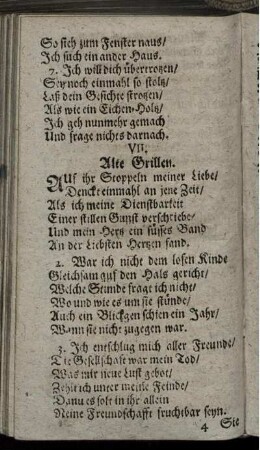 So sieh zum Fenster naus/
Ich such ein ander Haus.
7. Ich will dich übertrotzen/
Sey noch einmahl so stoltz/
Laß dein Gesichte strotzen/
Als wie ein Eichen-Holtz/
Ich geh nunmehr gemach
Und frage nichts darnach.
VII.
Alte Grillen.
AUf ihr Stoppeln meiner Liebe/
Denckt einmahl an jene Zeit/
Als ich meine Dienstbarkeit
Einer stillen Gunst verschriebe/
Und mein Hertz ein süsses Band
An der Liebsten Hertzen fand.
2. War ich nicht dem losen Kinde
Gleichsam auf den Hals gericht/
Welche Stunde fragt ich nicht/
Wo und wie es um sie stünde/
Auch ein Blick gen schien ein Jahr/
Wenn sie nicht zugegen war.
3. Ich entschlug mich aller Freunde/
Die Gesellschaft war mein Tod/
Was mir neue Lust gebot/
Zehlt ich unter meine Feinde/
Dann es solt in ihr allein
Meine Freundschafft fruchtbar seyn.
4 Sie